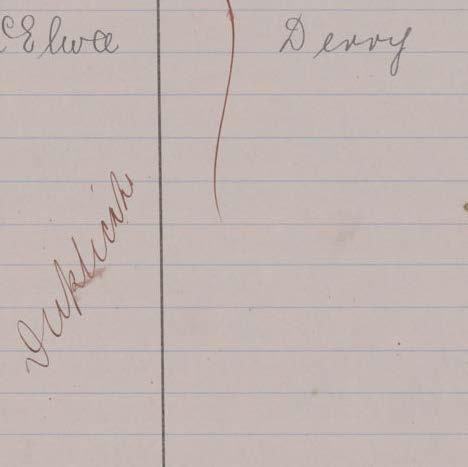 cElwee Derry
Duplicate